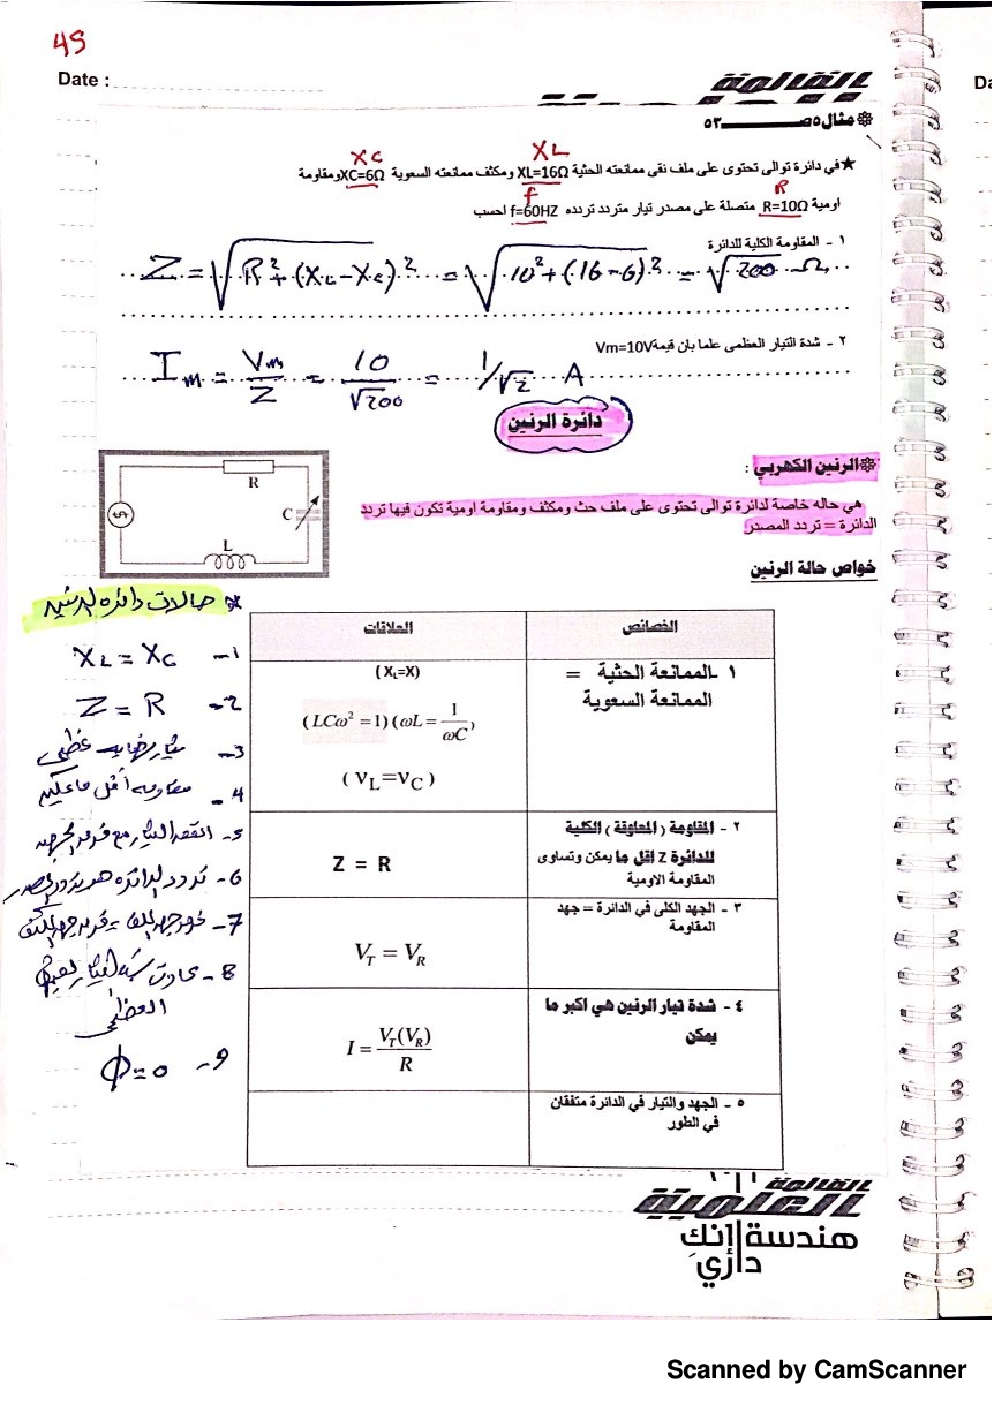 49
Date :
القائمة
❋ مثال٥صـــــــــ٥٣
XC XL
★ في دائرة توالى تحتوى على ملف نقي ممانعته الحثية XL=16Ω ومكثف ممانعته السعوية XC=6Ω ومقاومة
R
f
اومية R=10Ω متصلة على مصدر تيار متردد تردده f=60HZ احسب
١ - المقاومة الكلية للدائرة
Z = √R² + (XL - XC)² = √10² + (16 - 6)² = √200 Ω
٢ - شدة التيار العظمى علما بان قيمة Vm=10V
Im = Vm/Z = 10/√200 = 1/√2 A
دائرة الرنين
❋ الرنين الكهربي :
هي حاله خاصة لدائرة توالى تحتوى على ملف حث ومكثف ومقاومة اومية تكون فيها تردد
الدائرة = تردد المصدر
R
C
L
خواص حالة الرنين
حالات دائرة الرنين
1- XL = XC
2- Z = R
3-
4- مقاومة أقل ما يمكن
5-
6- تردد الدائرة هو تردد المصدر
7- فرق جهد الملف = فرق جهد المكثف
8-
العظمى
9- Φ = 0
الخصائص العلاقات
١ - الممانعة الحثية = الممانعة السعوية
(XL=X)
(LCω² = 1) (ωL = 1/ωC)
(VL=VC)
٢ - المقاومة ( المعاوقة ) الكلية
للدائرة Z اقل ما يمكن وتساوى
المقاومة الاومية
Z = R
٣ - الجهد الكلى في الدائرة = جهد
المقاومة
VT = VR
٤ - شدة تيار الرنين هي اكبر ما
يمكن
I = VT(VR)/R
٥ - الجهد والتيار في الدائرة متفقان
في الطور
القائمة
العلمية
هندسة إنك
داري
Scanned by CamScanner